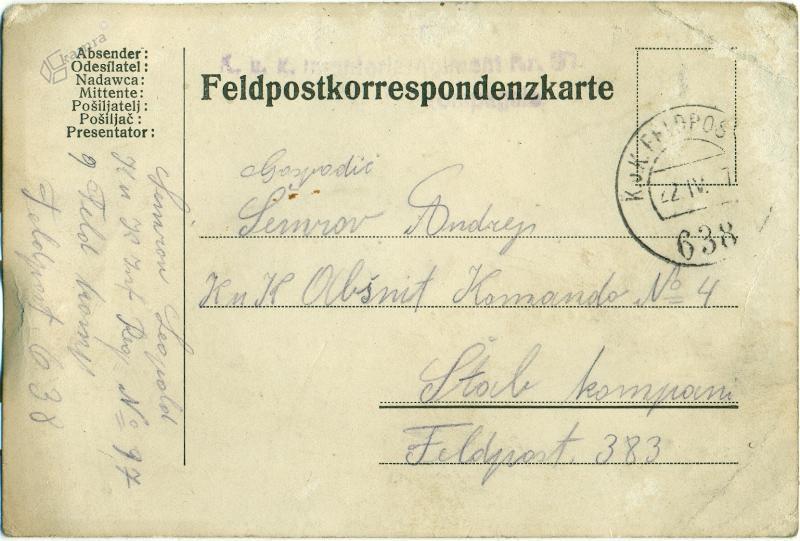 kamra
Absender:
Odesílatel:
Nadawca:
Mittente:
Pošiljatelj:
Pošiljač:
Presentator:
K. u. k. Infanterieregiment Nr. 97
Feldpostkorrespondenzkarte
K.u.K. FELDPOS
22. IV.
638
Gospodič
Šemrov Andrej
K u K Abšnit Komando No 4
Štab kompani
Feldpost 383
Šemrov Leopold
K u K Inf Reg. No 97
9 Feld komp
Feldpost 638